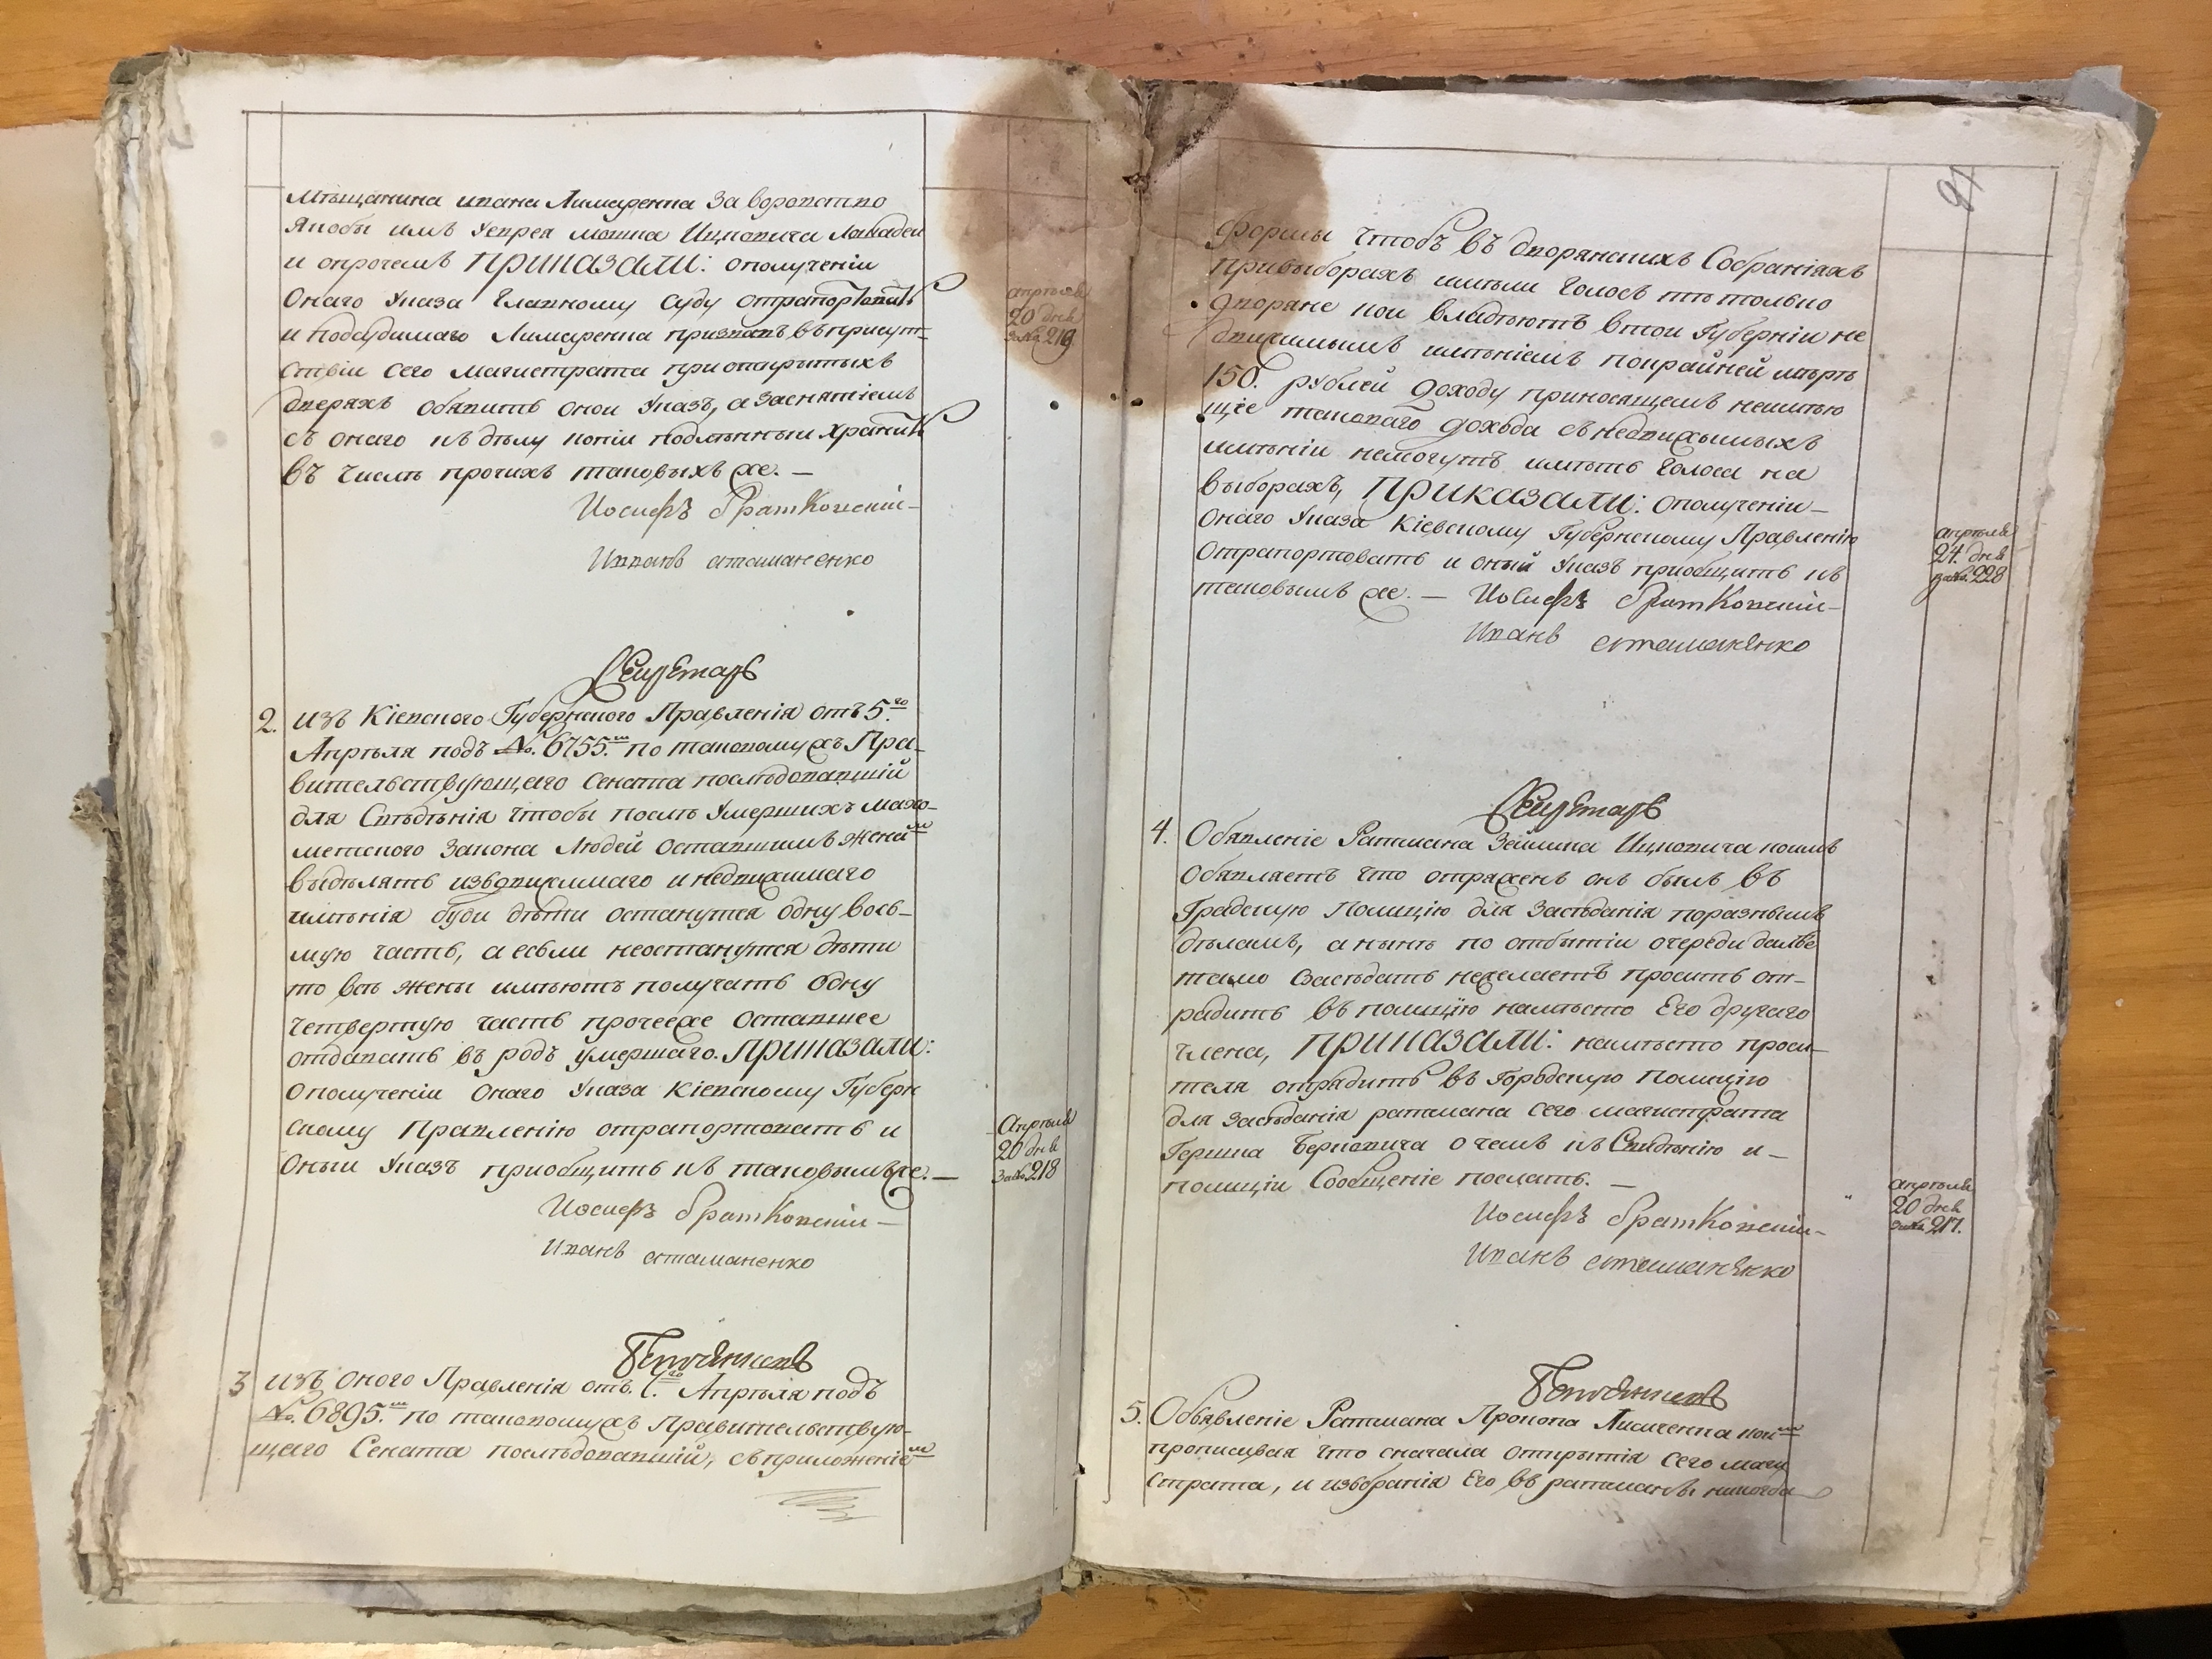 мѣщанина ивана Лимаренка За воровство
Якобы имъ Уеврея мошка Ицковича Лошадей
и опрочемъ ПРИКАЗАЛИ: ополученіи
Онаго Указа Главному Суду отрапортовать
и подсудимаго Лимаренка призвавъ въ присут-
ствіи сего магистрата приоткрытыхъ
дверяхъ Обявить оной Указъ, а заснятіемъ
съ онаго къ дѣлу копіи подлѣнный хранить
въ числѣ прочихъ таковыхъ же. —
апрѣля
20 дня
за №. 219
Иосифъ Братковскій-
Иванъ атаманенко
Секретарь
2. изъ Кіевского Губернского Правленія отъ 5.го
Апрѣля подъ №. 6755.мъ по таковомужъ Пра-
вительствующаго Сената послѣдовавшій
для Свѣдѣнія чтобы послѣ Умершихъ махо-
метского Закона Людей оставшимъ женамъ
выдѣлять издвижимаго и недвижимаго
имѣнія буди дѣти останутся одну вось-
мую часть, а есьли неостанутся дѣти
то всѣ жены имѣютъ получать Одну
четвертую часть прочееже Оставшее
отдавать въ родъ умершаго. ПРИКАЗАЛИ:
Ополученіи Онаго Указа Кіевскому Губерн
скому Правленію отрапортовать и
Оный Указъ приобщить къ таковымъже. —
Апрѣля
20 дня
за №. 218
Иосифъ Братковскій-
Иванъ атаманенко
3 изъ Оного Правленія отъ. Апрѣля подъ
№. 6895.мъ по таковомужъ Правительствую-
щаго Сената послѣдовавшій, съприложеніемъ
91
формы чтобъ въ дворянскихъ Собраніяхъ
привыборахъ имѣли Голосъ тѣ только
дворяне кои владѣютъ втой Губерніи не
движимымъ имѣніемъ покрайней мѣрѣ
150. рублей доходу приносящемъ неимѣю
щіе таковаго дохода съ недвижымыхъ
имѣніи немогутъ имѣть Голоса на
выборахъ, ПРИКАЗАЛИ: ополученіи-
Онаго Указа Кіевскому Губернскому Правленію
Отрапортовать и оный Указъ приобщить къ
таковымъ же. — Иосифъ Братковскій-
апрѣля
24. дня
за №. 228
Иванъ атаманенко
Секретарь
4. Обявленіе Ратмана Зейлика Ицковича коимъ
Обявляетъ что отряженъ онъ былъ въ
Градскую Полицію для Засѣданія поразнымъ
дѣламъ, а нынѣ по отбытіи очереди далѣе
тамо Засѣдать нежелаетъ просить от-
рядить въ полицію намѣсто Его другаго
члена, ПРИКАЗАЛИ: намѣсто проси-
теля отрядить въ Городскую Полицію
для Засѣданія ратмана сего магистрата
Гершка Берковича о чемъ къ Свидѣнію и-
полиціи Сообщеніе послать. —
апрѣля
20 дня
за №. 217.
Иосифъ Братковскій-
Иванъ атаманенко
5. Объявленіе Ратмана Прокопа Лисиченка коимъ
прописывая что сначала Открытія Сего маги
страта, и избранія Его въ ратманы никогда